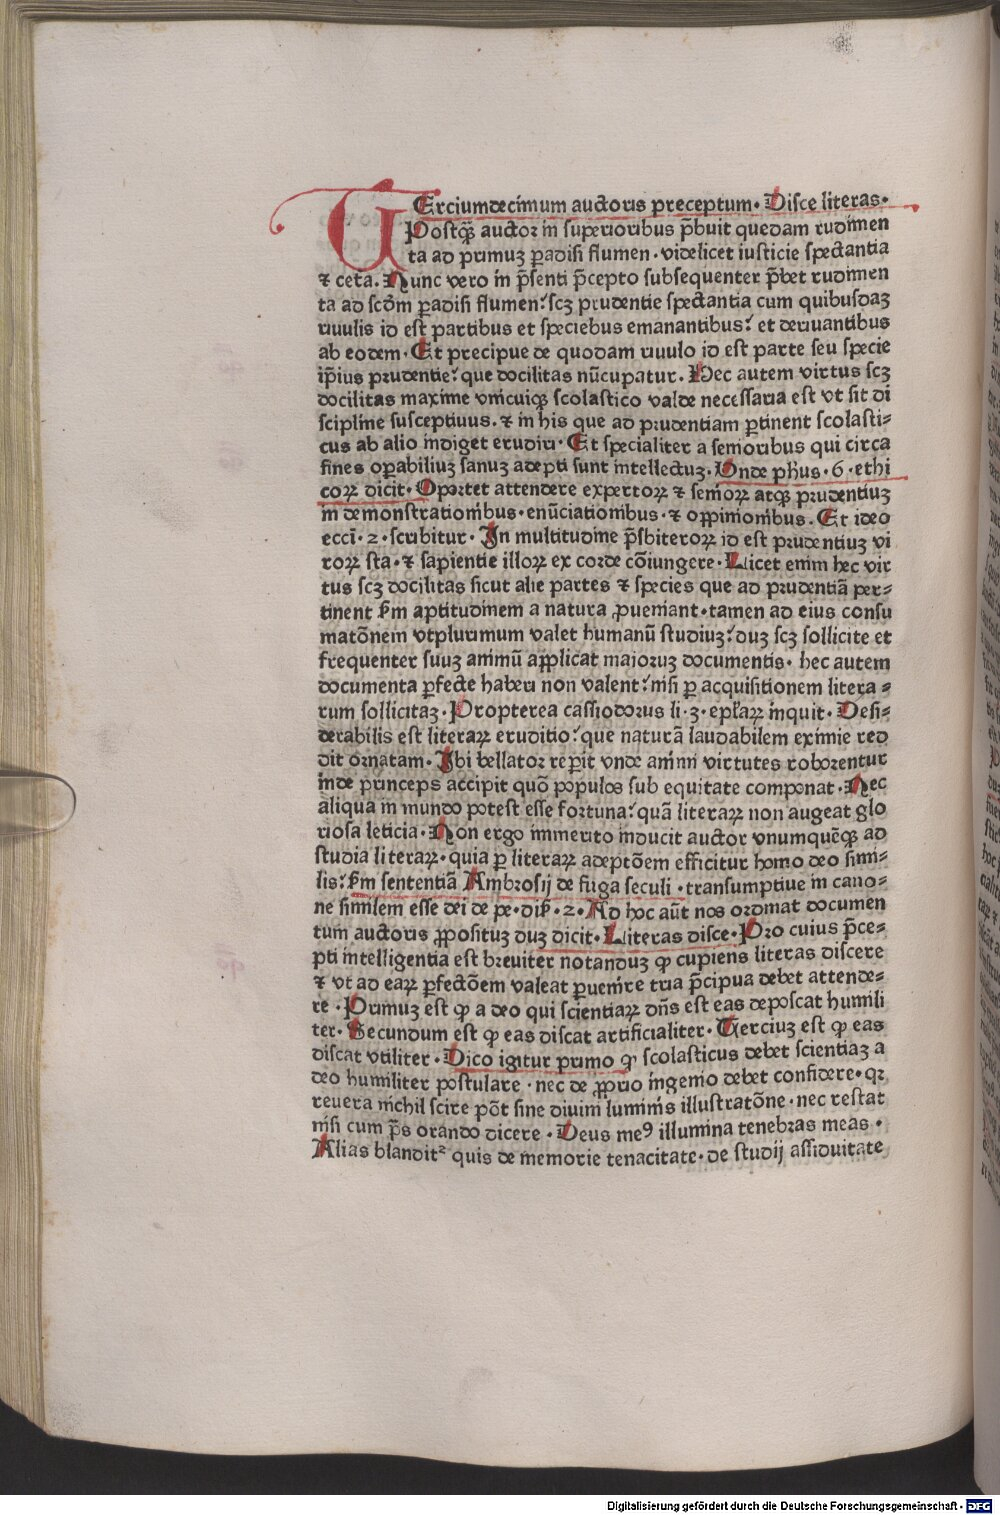 TErciumdecimum auctoris preceptum. Disce literas.
Postqꝫ auctor in superioribus p̄buit quedam rudimen
ta ad primuꝫ ꝑadisi flumen. videlicet iusticie spectantia
⁊ ceta. Nunc vero in p̄senti p̄cepto subsequenter p̄bet rudimen
ta ad scōm ꝑadisi flumen: scꝫ prudentie spectantia cum quibusdaꝫ
riuulis id est partibus et speciebus emanantibus: et deriuantibus
ab eodem. Et precipue de quodam riuulo id est parte seu specie
ip̄ius prudentie: que docilitas nūcupatur. Hec autem virtus scꝫ
docilitas maxime vnicuiqꝫ scolastico valde necessaria est vt sit di
scipline susceptiuus. ⁊ in his que ad prudentiam ꝑtinent scolasti-
cus ab alio indiget erudiri. Et specialiter a senioribus qui circa
fines oꝑabiliuꝫ sanuꝫ adepti sunt intellectuꝫ. Unde ph̄us. 6. ethi
coꝝ dicit. Oportet attendere expertoꝝ ⁊ senioꝝ atqꝫ prudentiuꝫ
in demonstrationibus. enūciationibus. ⁊ oppinionibus. Et ideo
eccī. 2. scribitur. In multitudine p̄sbiteroꝝ id est prudentiuꝫ vi
roꝝ sta. ⁊ sapientie illoꝝ ex corde cōiungere. Licet enim hec vir
tus scꝫ docilitas sicut alie partes ⁊ species que ad prudentiā per-
tinent ẜm aptitudinem a natura ꝓueniant. tamen ad eius consu
matōnem vtplurimum valet humanū studiuꝫ: duꝫ scꝫ sollicite et
frequenter suuꝫ animū applicat maioruꝫ documentis. hec autem
documenta ꝑfecte haberi non valent: nisi ꝑ acquisitionem litera-
rum sollicitaꝫ. Propterea cassiodorus li. 3. epl̄aꝝ inquit. Desi-
derabilis est literaꝝ eruditio: que naturā laudabilem eximie red
dit ornatam. Ibi bellator reꝑit vnde animi virtutes roborentur
inde princeps accipit quō populos sub equitate componat. Nec
aliqua in mundo potest esse fortuna: quā literaꝝ non augeat glo
riosa leticia. Non ergo immerito inducit auctor vnumquēqꝫ ad
studia literaꝝ. quia ꝑ literaꝝ adeptōem efficitur homo deo simi-
lis: ẜm sententiā Ambrosij de fuga seculi. transumptiue in cano-
ne similem esse dei de pe. dis̄. 2. Ad hoc aūt nos ordinat documen
tum auctoris ꝓpositum duꝫ dicit. Literas disce. Pro cuius p̄ce-
pti intelligentia est breuiter notanduꝫ ꝙ cupiens literas discere
⁊ vt ad eaꝝ ꝑfectōem valeat ꝑuenire tria p̄cipua debet attende-
re. Primuꝫ est ꝙ a deo qui scientiaꝝ dn̄s est eas deposcat humili
ter. Secundum est ꝙ eas discat artificialiter. Terciuꝫ est ꝙ eas
discat vtiliter. Dico igitur primo ꝙ scolasticus debet scientiaꝫ a
deo humiliter postulare. nec de ꝓprio ingenio debet confidere. qꝛ
reuera nichil scire pōt sine diuini luminis illustratōne. nec restat
nisi cum p̄s orando dicere. Deus meꝰ illumina tenebras meas.
Alias blandit᷑ quis de memorie tenacitate. de studij assiduitate
Digitalisierung gefördert durch die Deutsche Forschungsgemeinschaft - DFG